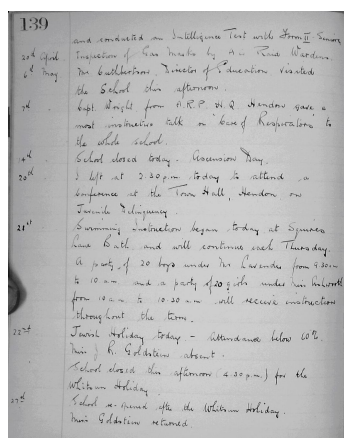 139
and conducted an Intelligence Test with Form II Seniors
20th April Inspection of Gas Masks by Air Raid Wardens.
6th May Mr Cuthbertson, Director of Education, visited
the School this afternoon.
7th Capt. Wright from A.R.P. H.Q. Hendon gave a
most instructive talk on 'Care of Respirators' to
the whole school.
School closed today - Ascension Day.
20th I left at 2.30 p.m. today to attend a
Conference at the Town Hall, Hendon on
Juvenile Delinquency.
21st Swimming Instruction began today at Squires
Lane Bath and will continue each Thursday.
A party of 20 boys under Mr Lavender from 9.30 am
to 10 am and a party of 20 girls under Miss
from 10 am to 10.30 am will receive instruction
throughout the term.
22nd Jewish Holiday today - attendance below 60%.
Miss J. R. Goldstein absent.
School closed this afternoon (4.30 p.m.) for the
Whitsun Holiday.
27th School re-opened after the Whitsun Holiday.
Miss Goldstein returned.